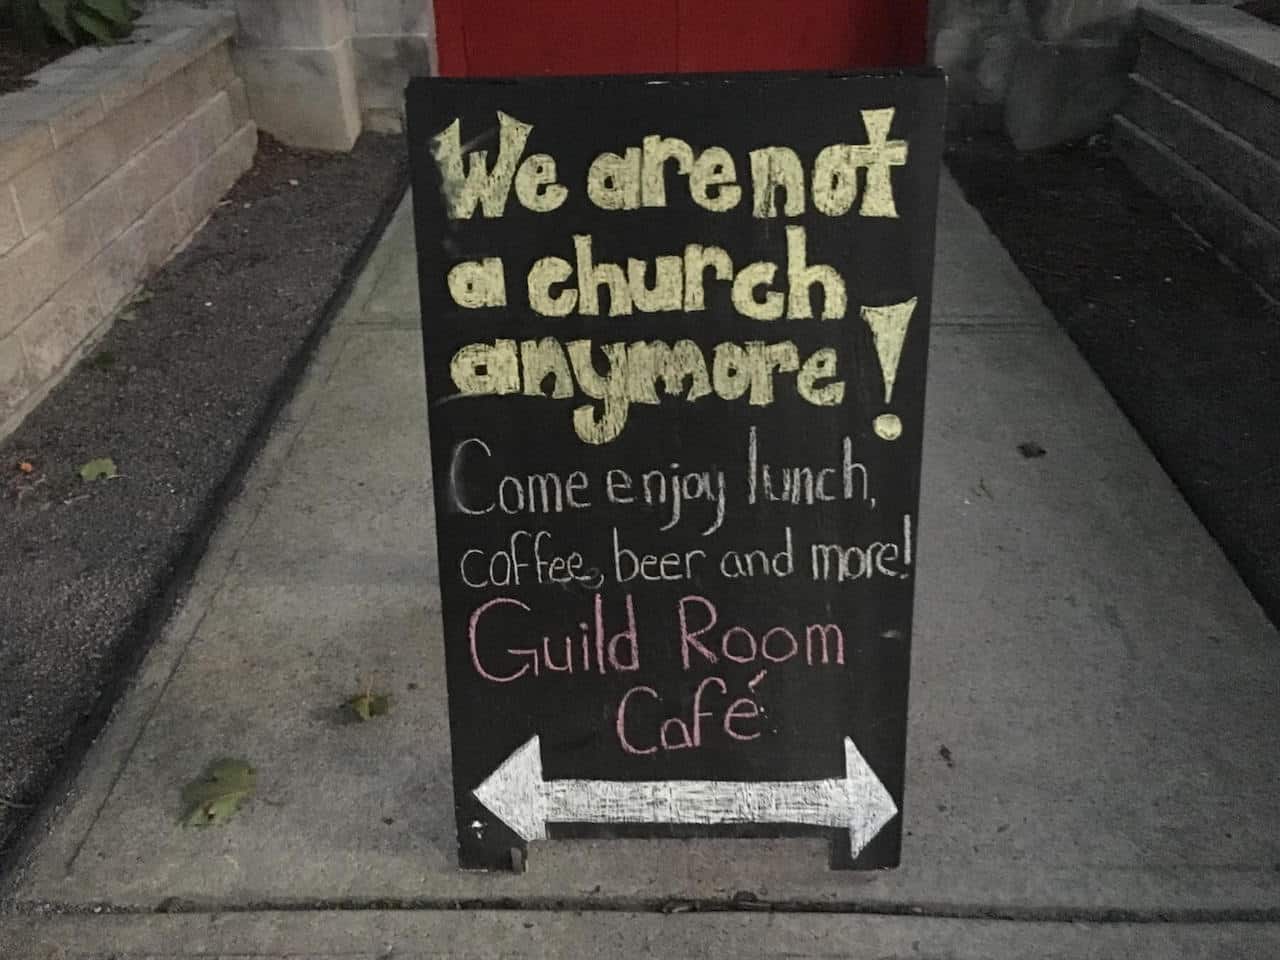 We are not
a church
anymore!
Come enjoy lunch,
coffee, beer and more!
Guild Room
Café